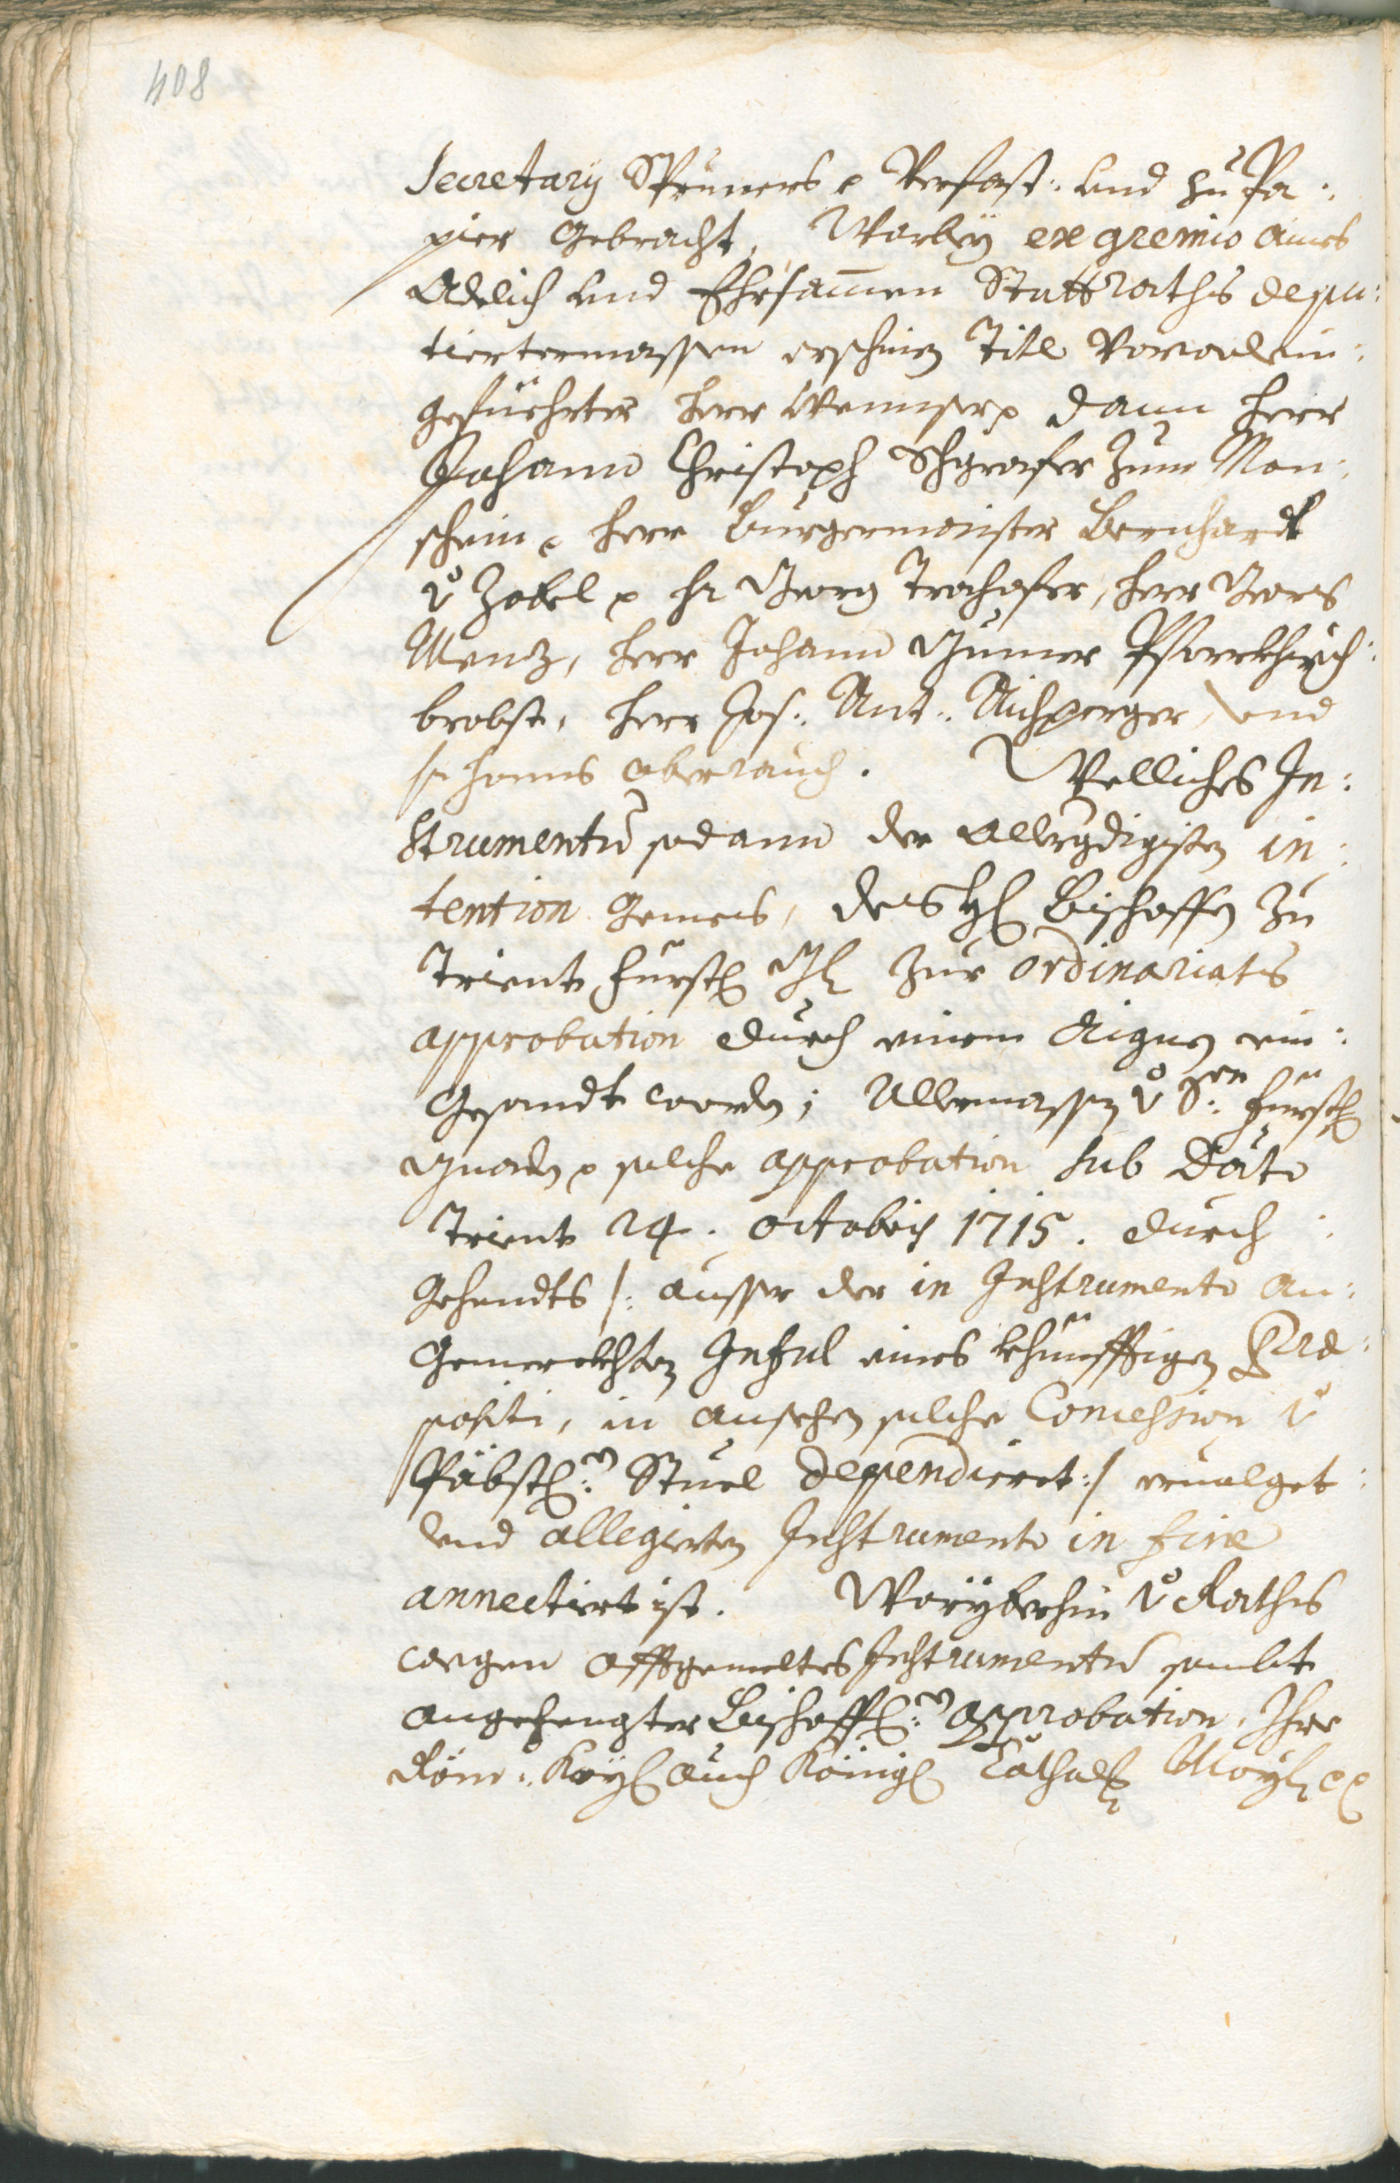 408
Secretary Spruners p Verfast: und zu Pa:
pier gebracht, Warbey ex gremio aines
Adelich und Ehrsamen Stattraths depu:
tiertermassen erschinen Titl Vorwolein:
gefüehrter Herr Wenser p dann Herr
Johann Christoph Schgrafer zum Mon:
schein p Herr Burgermaister Bernhardt
v Zobel p Hr Georg Trohofer, Herr Geors
Menz, Herr Johann Gumer Pfarrkhirch:
brobst, Herr Jos: Ant: Aichperger, und
Hr Hanns Oberrauch. Welliches In:
strumentum sodann der Allergdigisten in:
tention gemess, des H. Bischoffen zu
Trient Fürstl. Gn. zur ordinariats
approbation durch einem Aignen ein:
gesandt worden; Allermassen v Sr: Fürstl.
Gnaden p solche approbation sub Dato
Trient 24. octobris 1715. durch:
gehendts /: ausser der in Instrumento an:
gemerckhten Inful eines khünfftigen Præ:
positi, in ansehen solche Concession v
Päbstl:n Stuel dependieret :/ ervolget:
und allegierten Instrumento in fine
annectiert ist. Worÿberhin v Raths
wegen offtgemeltes Instrumentum sambt
angehengter Bischoffl:n approbation, Ihro
Röm: Kayl. auch Königl. Cathol. Mayt. pp